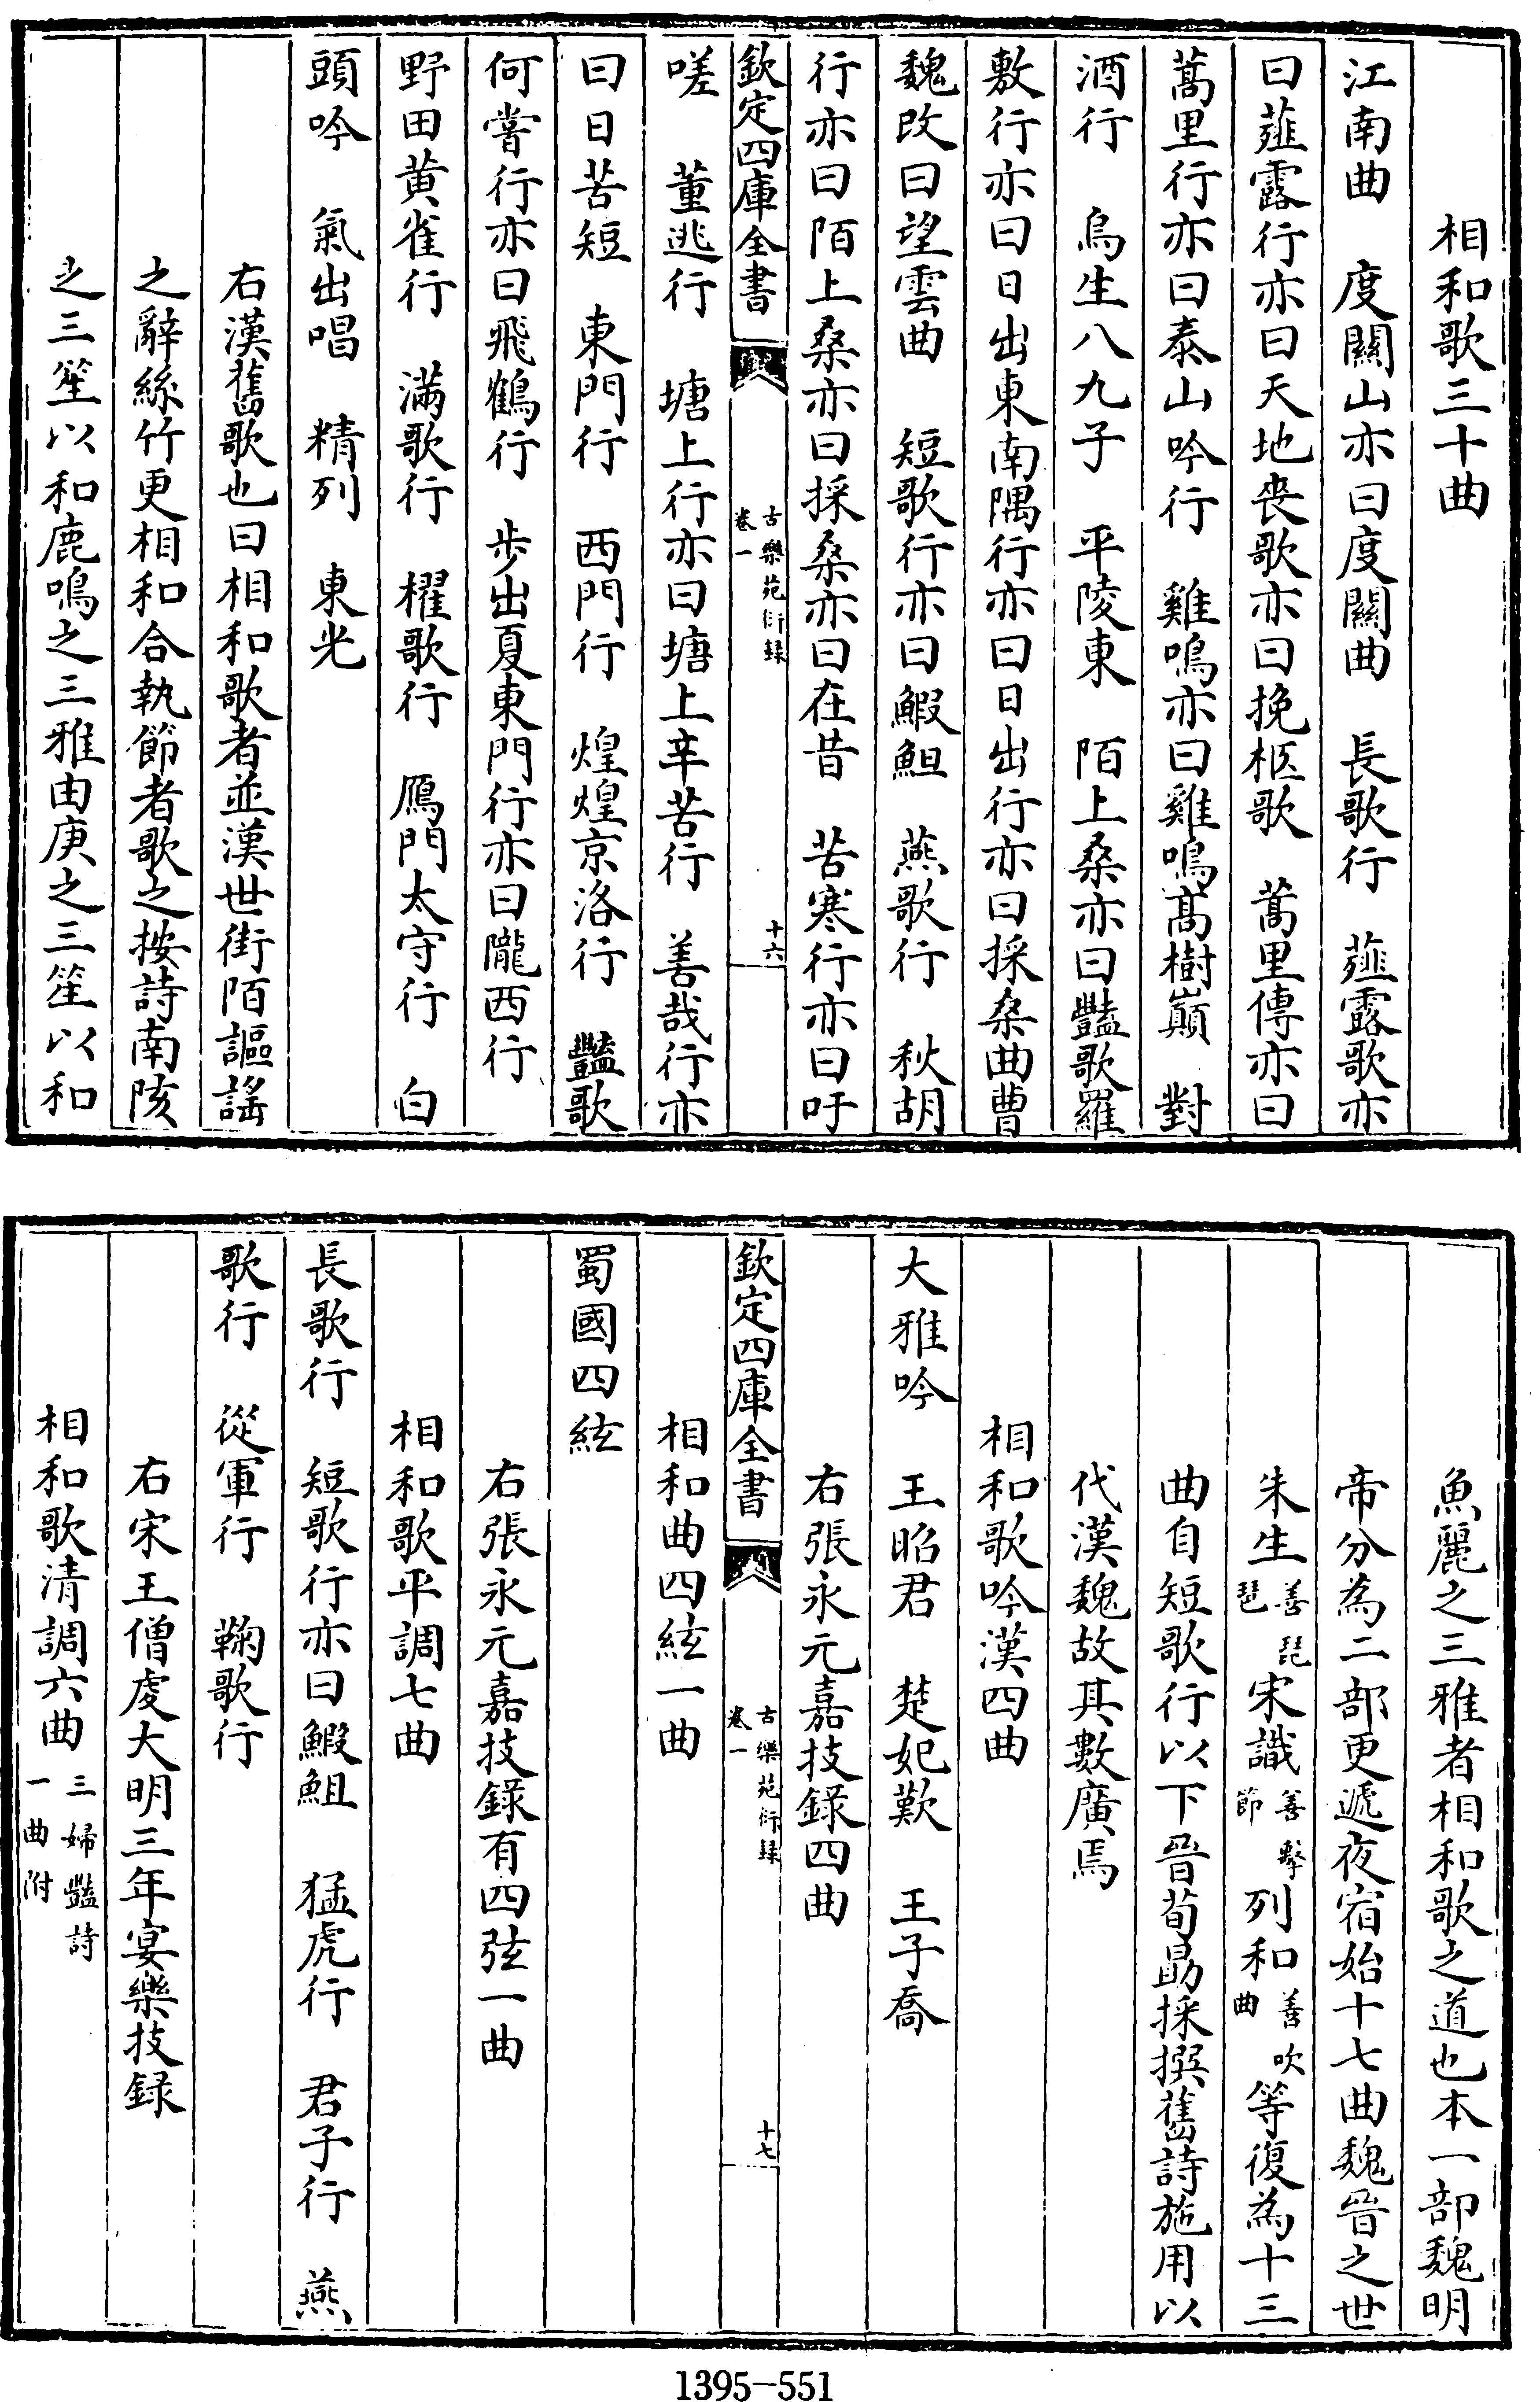 相和歌三十曲
江南曲　度關山亦曰度關曲　長歌行　薤露歌亦
曰薤露行亦曰天地喪歌亦曰挽柩歌　蒿里傳亦曰
蒿里行亦曰泰山吟行　雞鳴亦曰雞鳴髙樹巔　對
酒行　烏生八九子　平陵東　陌上桑亦曰豔歌羅
敷行亦曰日出東南隅行亦曰日出行亦曰採桑曲曹
魏改曰望雲曲　短歌行亦曰鰕䱇　燕歌行　秋胡
行亦曰陌上桑亦曰採桑亦曰在昔　苦寒行亦曰吁
欽定四庫全書
古樂苑衍録
卷一
十六
嗟　董逃行　塘上行亦曰塘上辛苦行　善哉行亦
曰日苦短　東門行　西門行　煌煌京洛行　豔歌
何嘗行亦曰飛鶴行　步出夏東門行亦曰隴西行
野田黄雀行　滿歌行　櫂歌行　鴈門太守行　白
頭吟　氣出唱　精列　東光
右漢舊歌也曰相和歌者並漢世街陌謳謡
之辭絲竹更相和合執節者歌之按詩南陔
之三笙以和鹿鳴之三雅由庚之三笙以和
魚麗之三雅者相和歌之道也本一部魏明
帝分為二部更遞夜宿始十七曲魏晉之世
朱生善琵琶宋識善擊節列和善吹曲等復為十三
曲自短歌行以下晉荀勗採撰舊詩施用以
代漢魏故其數廣焉
相和歌吟漢四曲
大雅吟　王昭君　楚妃歎　王子喬
右張永元嘉技録四曲
欽定四庫全書
古樂苑衍録
卷一
十七
相和曲四絃一曲
蜀國四絃
右張永元嘉技録有四弦一曲
相和歌平調七曲
長歌行　短歌行亦曰鰕䱇　猛虎行　君子行　燕
歌行　從軍行　鞠歌行
右宋王僧虔大明三年宴樂技録
相和歌清調六曲三婦豔詩一曲附
1395-551